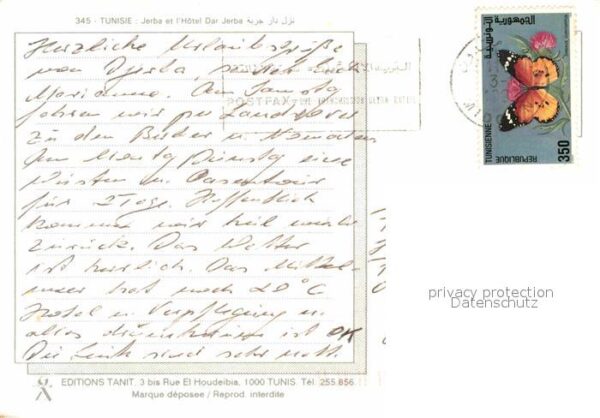 345 - TUNISIE : Jerba et l'Hôtel Dar Jerba نزل دار جربة
Herzliche Urlaubsgrüße
von Djerba
Marianne. Am Samstag
fahren wir per Landrover
zu den Berber u. Nomaden
Am Montag Dienstag eine
Wüsten u. Oasentour
für 2 Tage. Hoffentlich
kommen wir heil wieder
zurück. Das Wetter
ist herrlich. Das Mittel-
meer hat noch 20°C
Hotel u. Verpflegung u.
alles ist OK
Die Leute sind sehr nett
POSTFAX
الجمهورية التونسية
REPUBLIQUE TUNISIENNE
350
privacy protection
Datenschutz
EDITIONS TANIT. 3 bis Rue El Houdeibia, 1000 TUNIS Tél. 255.856
Marque déposée / Reprod. interdite